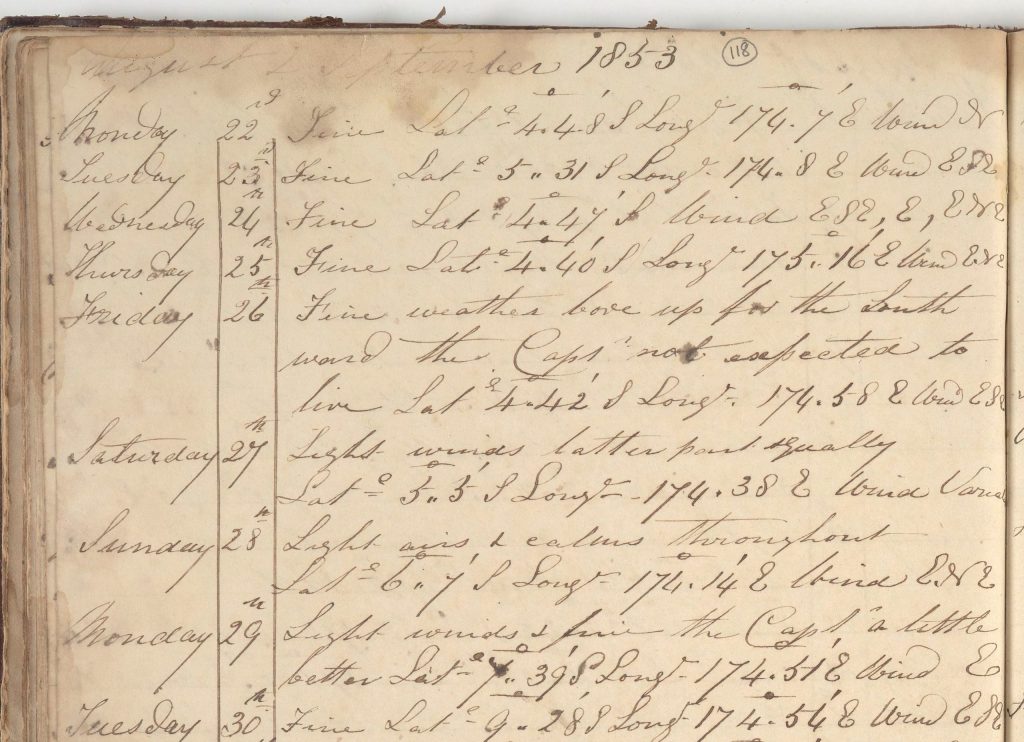 August & September 1853 118
Monday 22d Fine Late 4.48 S Longe 174.7 E Wind N
Tuesday 23d Fine Late 5.31 S Longe 174.8 E Wind ESE
Wednesday 24th Fine Late 4.47 S Wind ESE, E, ENE
Thursday 25th Fine Late 4.40 S Longe 175.16 E Wind ENE
Friday 26th Fine weather bore up for the South
ward the Captn not expected to
live Late 4.42 S Longe 174.58 E Wind ESE
Saturday 27th Light winds latter part squally
Late 5.5 S Longe 174.38 E Wind Varia
Sunday 28th Light airs & calms throughout
Late 6.7 S Longe 174.14 E Wind ENE
Monday 29th Light winds & fine the Captn a little
better Late 7.39 S Longe 174.51 E Wind E
Tuesday 30th Fine Late 9.28 S Longe 174.54 E Wind ESE